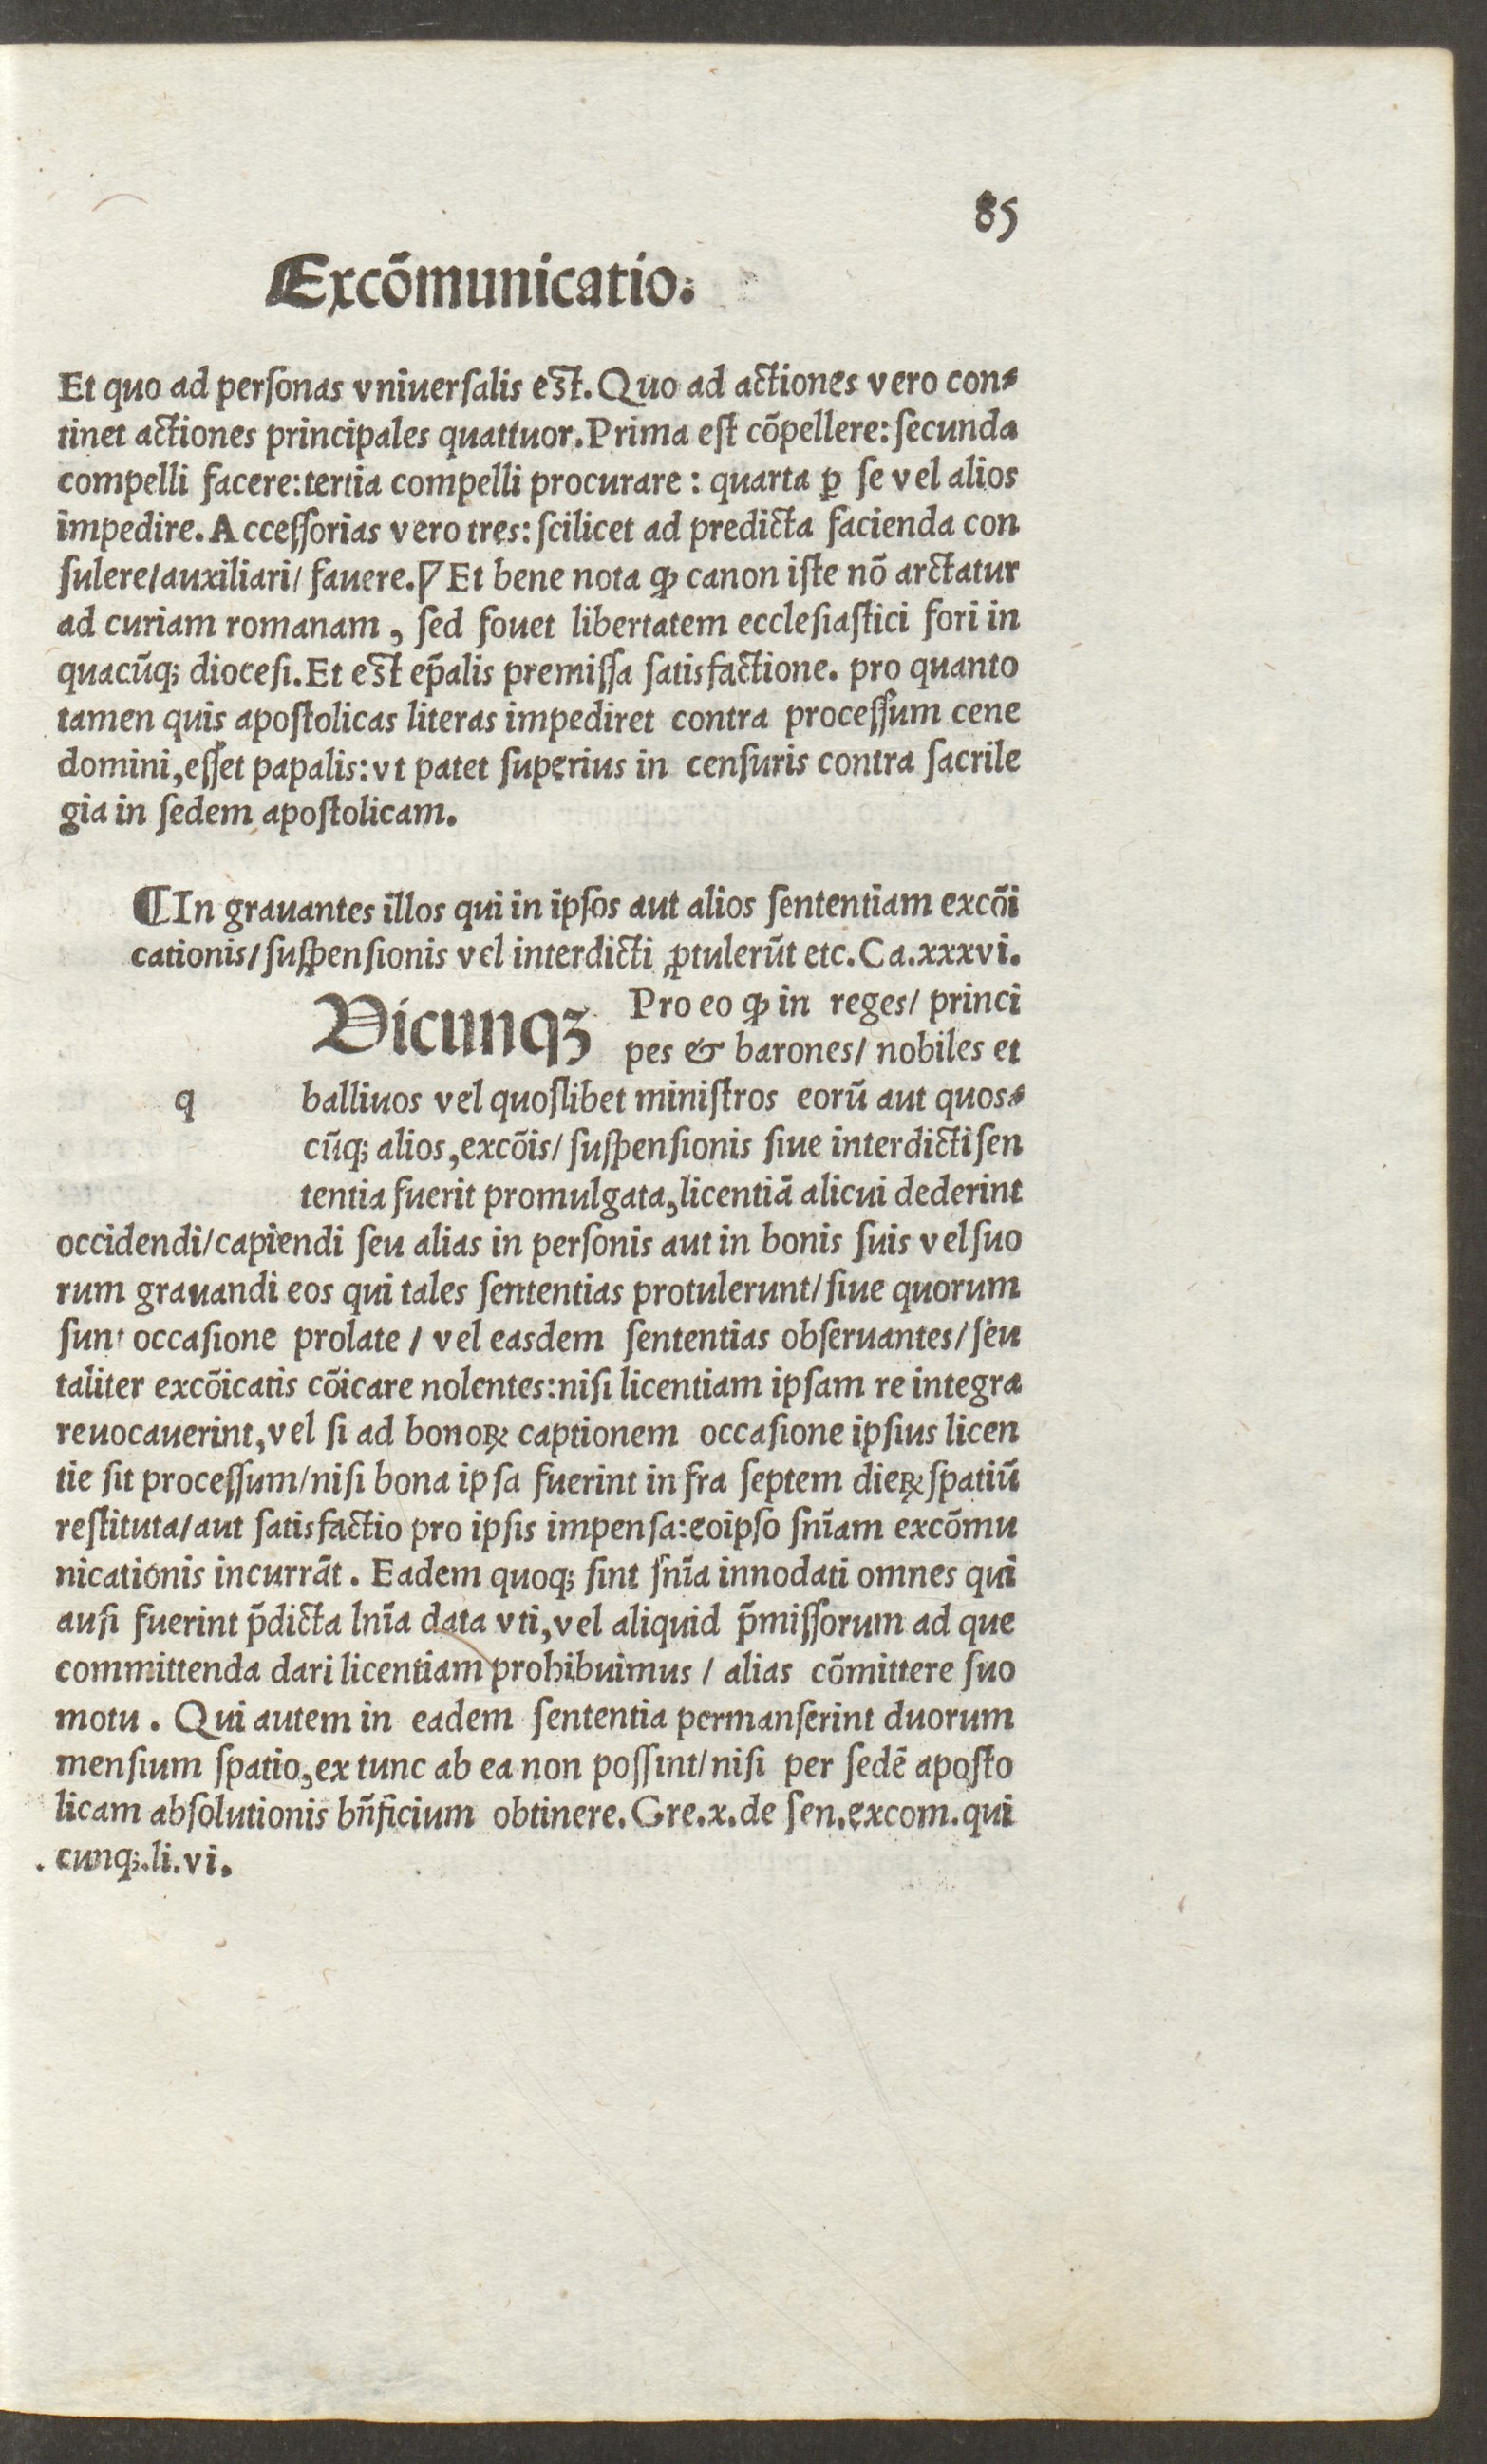 85
Excōmunicatio.
Et quo ad perſonas vniuerſalis eſt. Quo ad actiones vero con⸗
tinet actiones principales quattuor. Prima eſt cōpellere: ſecunda
compelli facere: tertia compelli procurare : quarta ꝑ ſe vel alios
impedire. Acceſſorias vero tres: ſcilicet ad predicta facienda con
ſulere/ auxiliari/ fauere. ꝟ Et bene nota ꝙ canon iſte nō arctatur
ad curiam romanam , ſed fouet libertatem eccleſiaſtici fori in
quacūqꝫ dioceſi. Et eſt ep̄alis premiſſa ſatisfactione. pro quanto
tamen quis apoſtolicas literas impediret contra proceſſum cene
domini, eſſet papalis: vt patet ſuperius in cenſuris contra ſacrile
gia in ſedem apoſtolicam.
¶ In grauantes illos qui in ipſos aut alios ſententiam excōi
cationis/ ſuſpenſionis vel interdicti ꝓtulerūt etc. Ca. xxxvi.
Vicunqꝫ Pro eo ꝙ in reges/ princi
pes & barones/ nobiles et
q balliuos vel quoſlibet miniſtros eorū aut quos⸗
cūqꝫ alios, excōis/ ſuſpenſionis ſiue interdicti ſen
tentia fuerit promulgata, licentiā alicui dederint
occidendi/ capiendi ſeu alias in perſonis aut in bonis ſuis vel ſuo
rum grauandi eos qui tales ſententias protulerunt/ ſiue quorum
ſunt occaſione prolate / vel easdem ſententias obſeruantes/ ſeu
taliter excōicatis cōicare nolentes: niſi licentiam ipſam re integra
reuocauerint, vel ſi ad bonoꝝ captionem occaſione ipſius licen
tie ſit proceſſum/ niſi bona ipſa fuerint infra ſeptem dieꝝ ſpatiū
reſtituta/ aut ſatisfactio pro ipſis impenſa: eoipſo ſnīam excōmu
nicationis incurrāt . Eadem quoqꝫ ſint ſnīa innodati omnes qui
auſi fuerint p̄dicta lnīa data vti, vel aliquid p̄miſſorum ad que
committenda dari licentiam prohibuimus / alias cōmittere ſuo
motu . Qui autem in eadem ſententia permanſerint duorum
menſium ſpatio, ex tunc ab ea non poſſint/ niſi per ſedē apoſto
licam abſolutionis bn̄ficium obtinere. Gre. x. de ſen. excom. qui
cunqꝫ. li. vi.